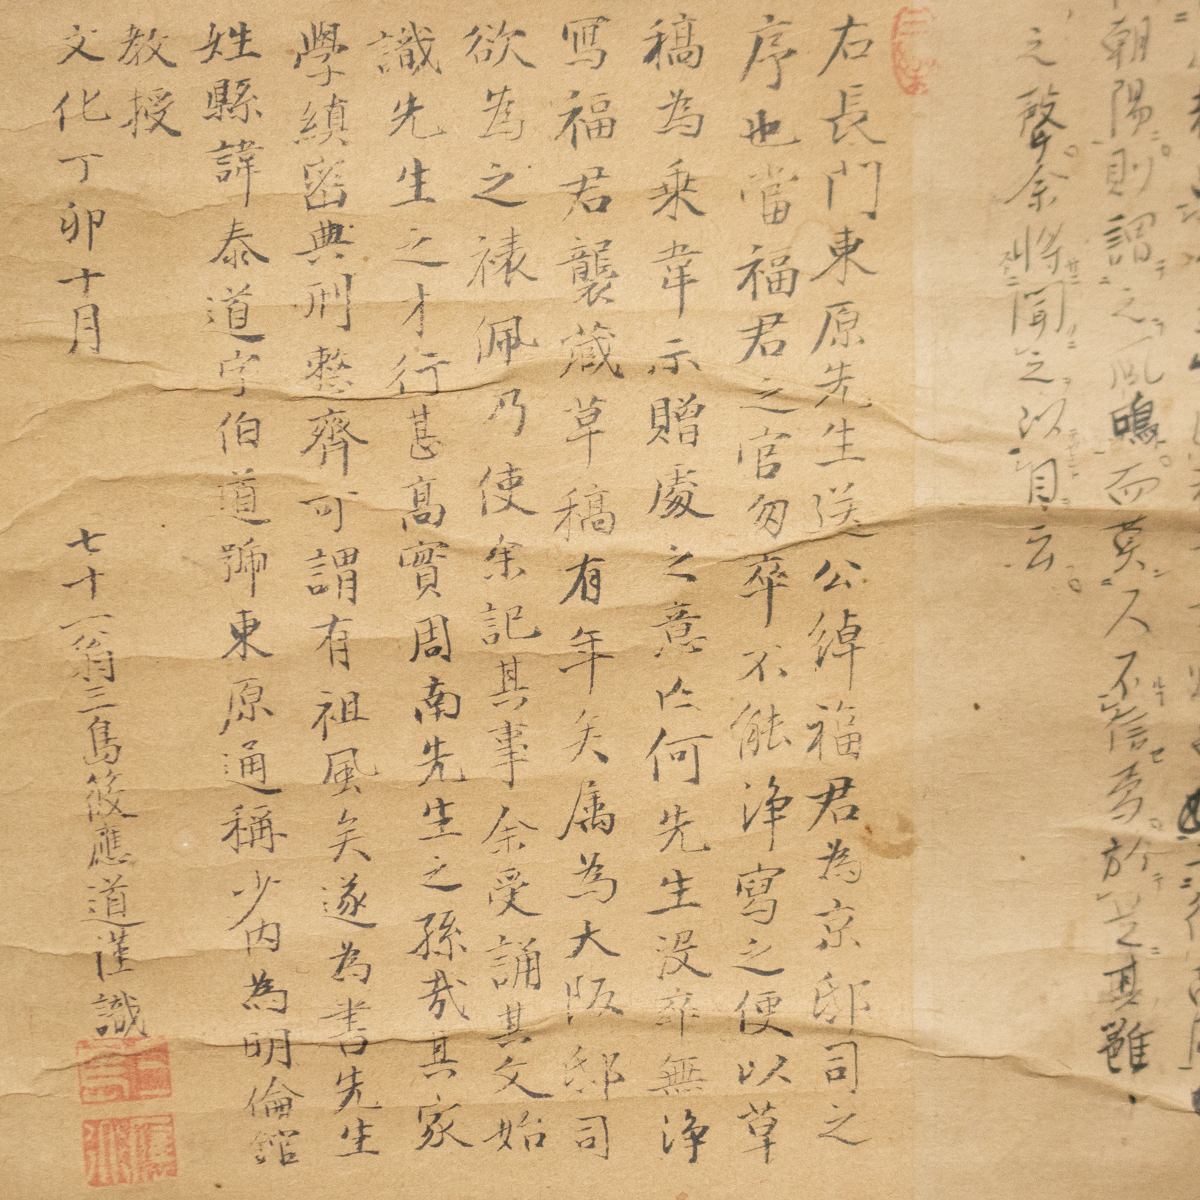 朝陽則謂之鳳鳴而莫人不信焉於是其雖
之聲余將聞之以自云
右長門東原先生送公綽福君為京邸司之
序也當福君之官匆卒不能淨寫之便以草
稿為乗韋示贈處之意亡何先生没卒無淨
寫福君襲藏草稿有年矣属為大阪邸司
欲為之裱佩乃使余記其事余受誦其文始
識先生之才行甚高實周南先生之孫哉其家
學縝密典刑整齊可謂有祖風矣遂為書先生
姓縣諱泰道字伯道號東原通稱少内為明倫館
教授
文化丁卯十月
七十一翁三島筱應道謹識